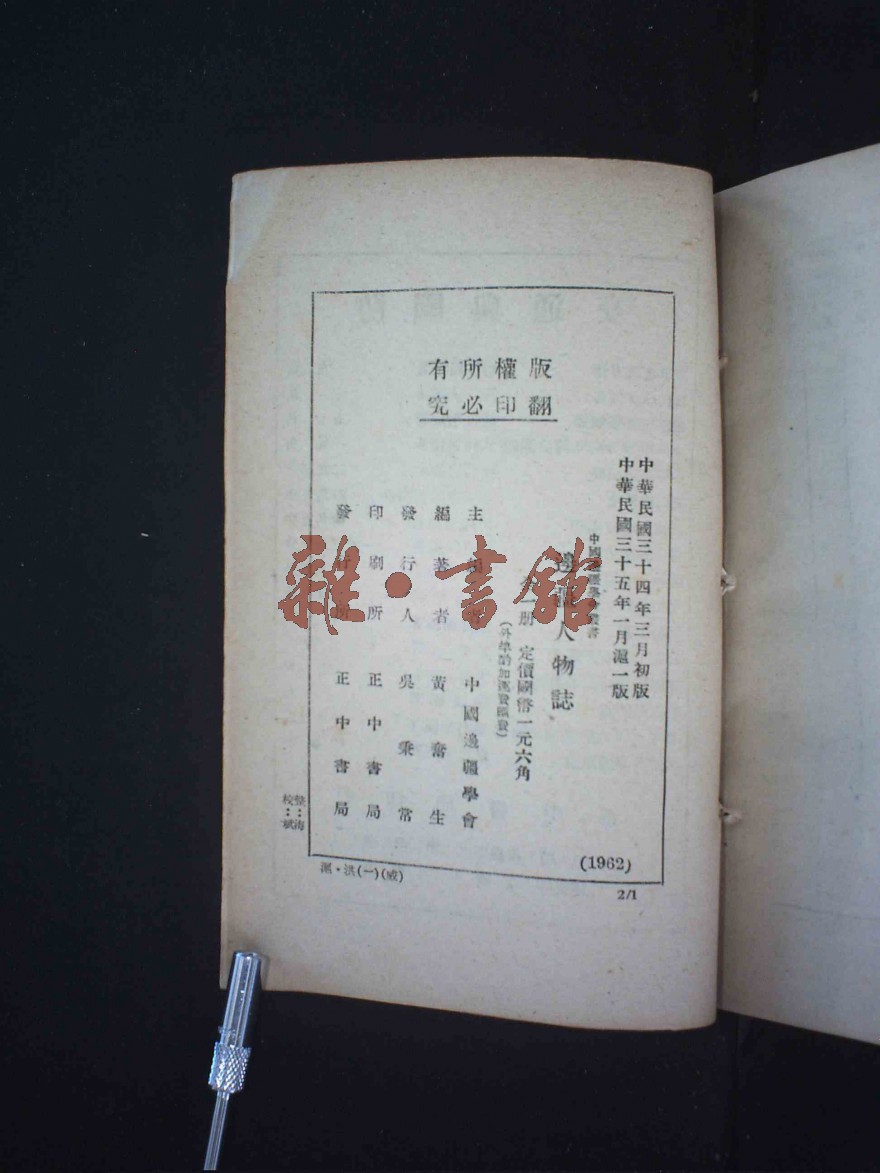 版權所有
翻印必究
中華民國三十四年三月初版
中華民國三十五年一月滬一版
中國邊疆學會叢書
邊疆人物誌
全一冊 定價國幣一元六角
(外埠酌加運費匯費)
主編者 中國邊疆學會
編著者 黃奮生
發行人 吳秉常
印刷所 正中書局
發行所 正中書局
(1962)
校:斌
滬·洪(一)(威)
2/1
雜·書館